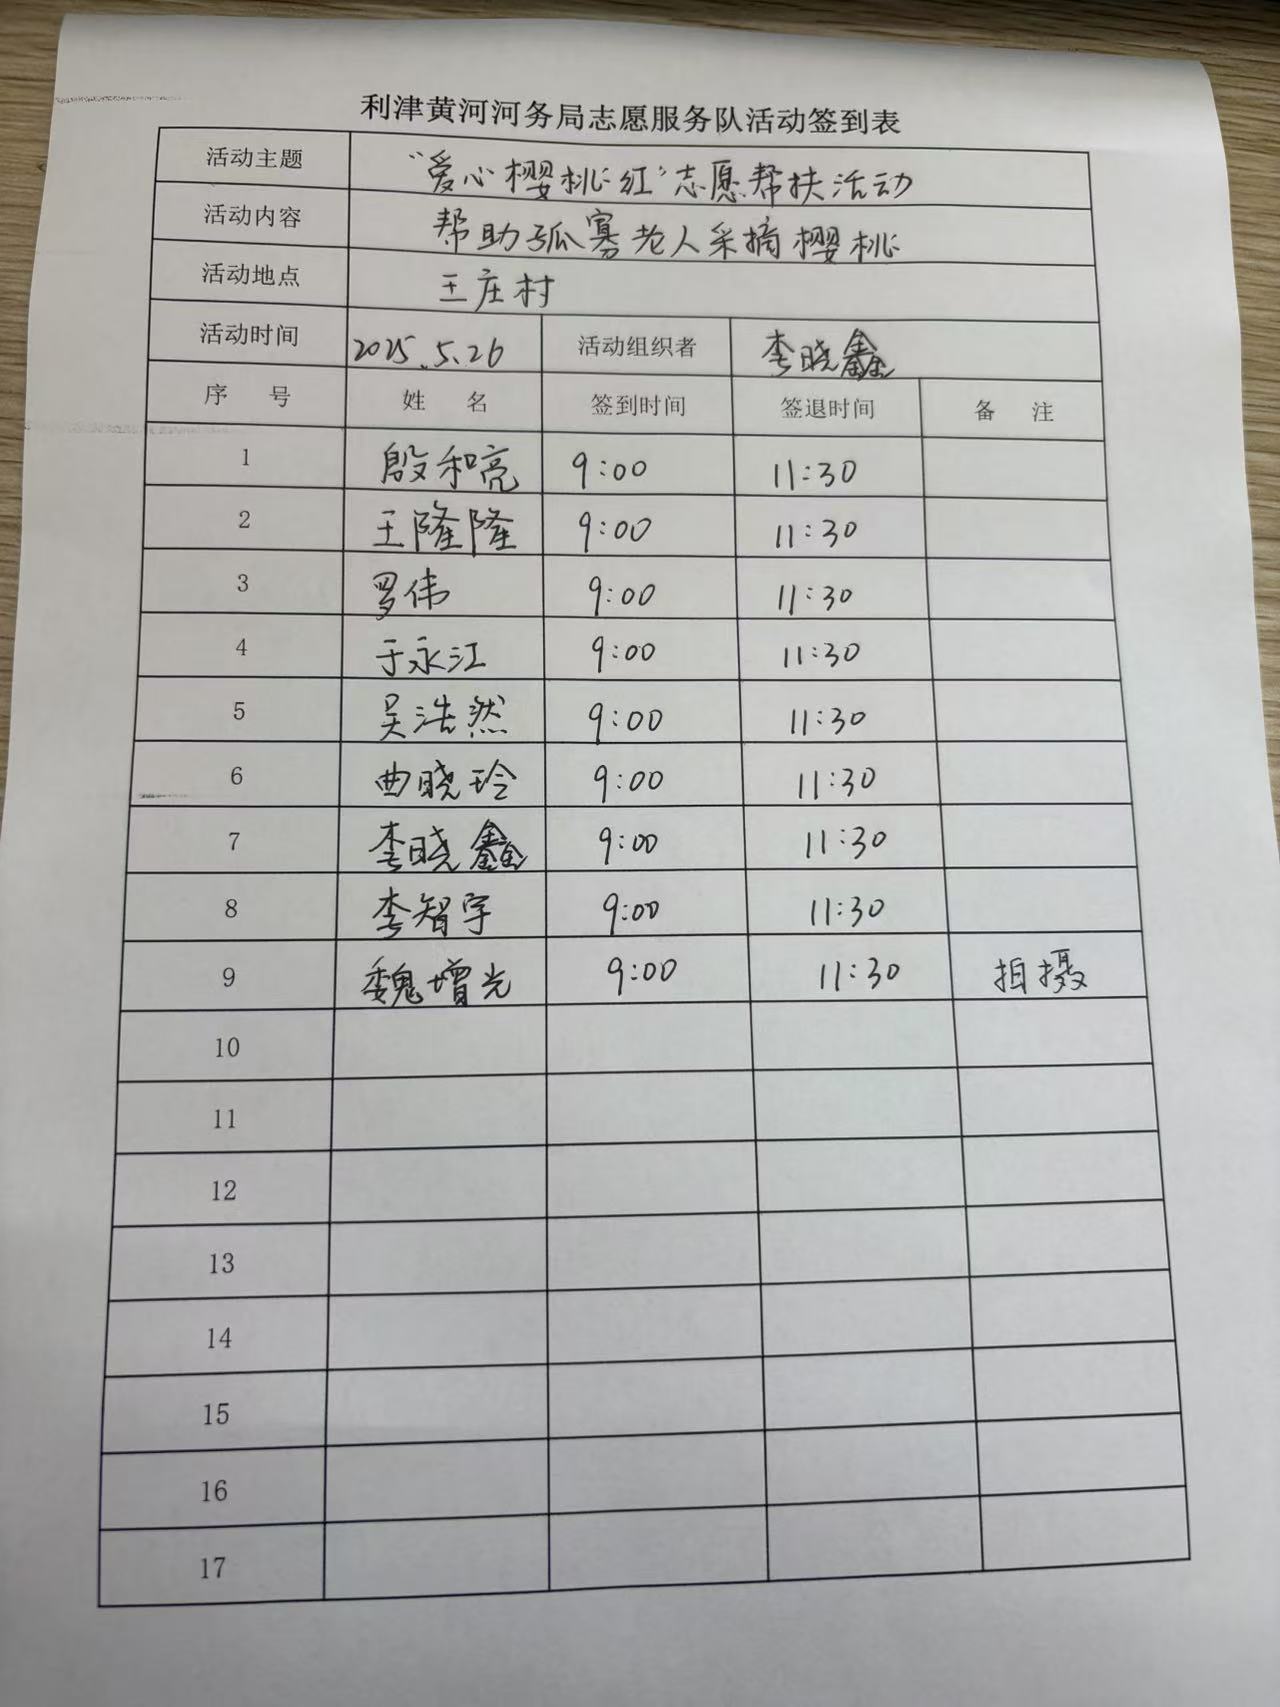 利津黄河河务局志愿服务队活动签到表
活动主题 "爱心樱桃红"志愿帮扶活动
活动内容 帮助孤寡老人采摘樱桃
活动地点 王庄村
活动时间 2025.5.26 活动组织者 李晓鑫
序 号 姓 名 签到时间 签退时间 备 注
1 殷和亮 9:00 11:30
2 王隆隆 9:00 11:30
3 罗伟 9:00 11:30
4 于永江 9:00 11:30
5 吴浩然 9:00 11:30
6 曲晓玲 9:00 11:30
7 李晓鑫 9:00 11:30
8 李智宇 9:00 11:30
9 魏增光 9:00 11:30 拍摄
10
11
12
13
14
15
16
17